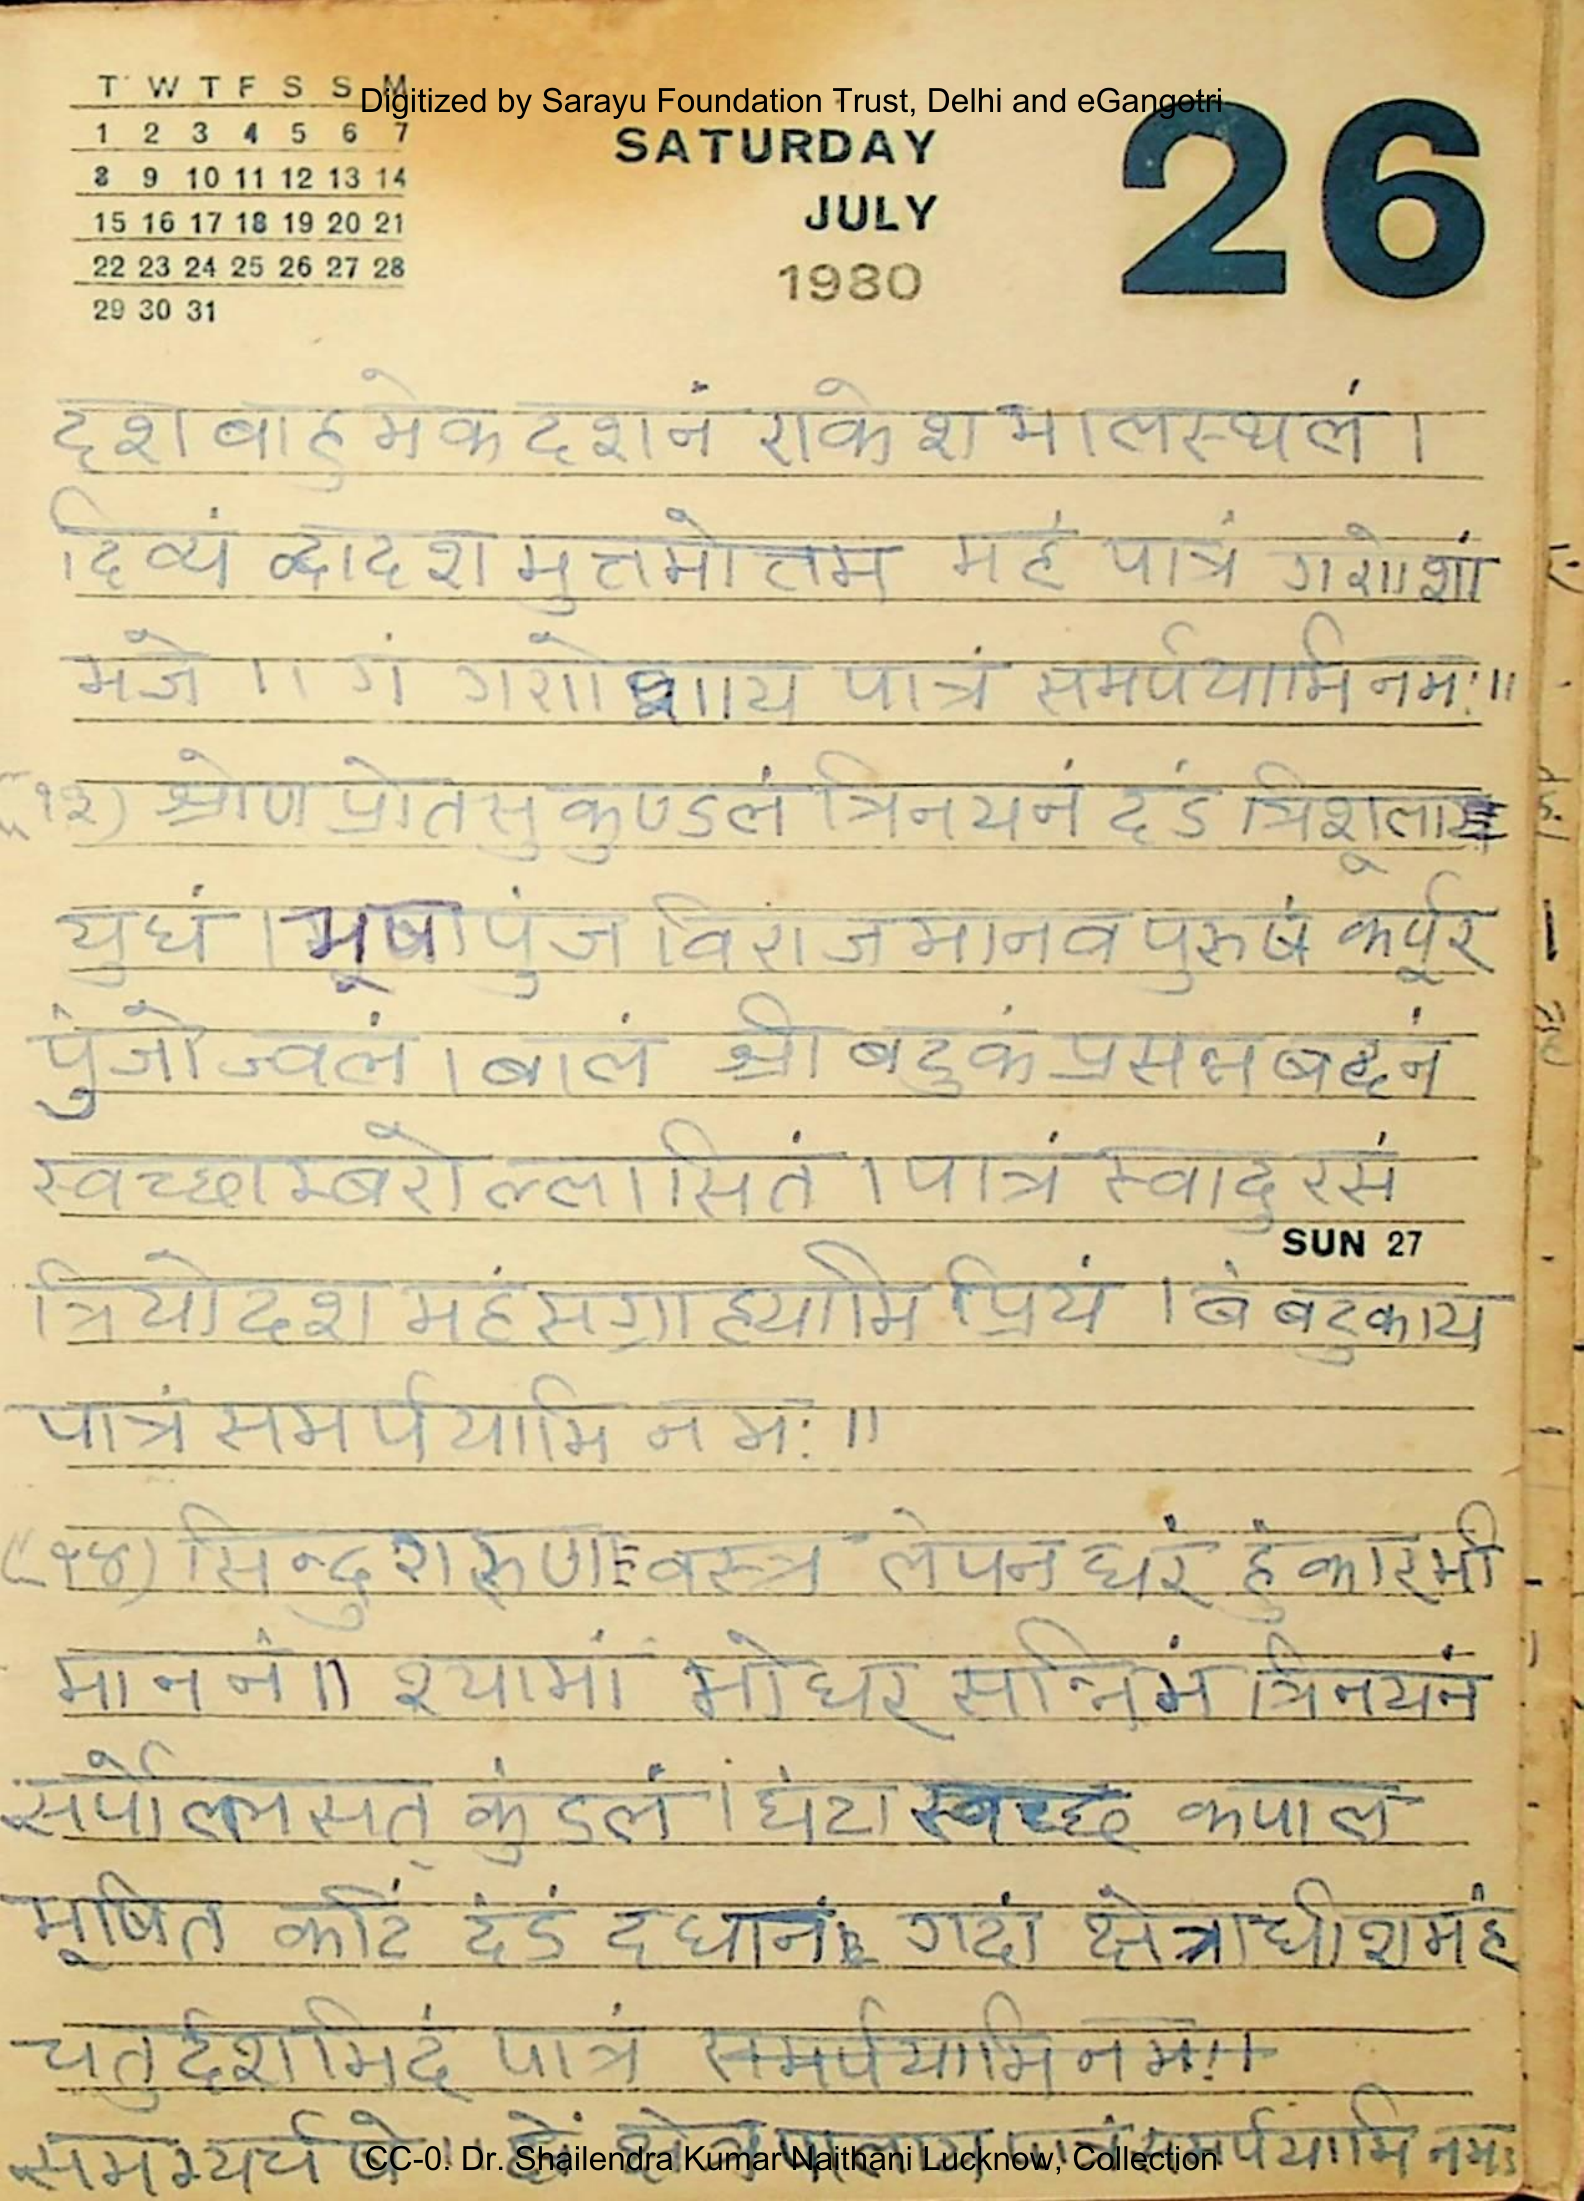 T W T F S S M
Digitized by Sarayu Foundation Trust, Delhi and eGangotri
1 2 3 4 5 6 7
8 9 10 11 12 13 14
15 16 17 18 19 20 21
22 23 24 25 26 27 28
29 30 31
SATURDAY
JULY
1980
26
दशबाहुमेकदशनं राकेशभालस्थलं ।
दिव्यं द्वादशमुत्तमोत्तम महं पात्रं गणेशां
भजे ।। गं गणेशाय पात्रं समर्पयामि नमः॥
(१३) श्रोण प्रोतसुकुण्डलं त्रिनयनं दंड त्रिशूला
युधं । भूषापुंज विराजमानवपुरुषं कर्पूर
पुंजोज्वलं । बालं श्री बटुकं प्रसन्नबदनं
स्वच्छाम्बरोल्लासितं । पात्रं स्वादुरसं
SUN 27
त्रियोदशमहंसग्राह्यामि प्रियं । बं बटुकाय
पात्रं समर्पयामि नमः ॥
(१४) सिन्दुरारूणवस्त्र लेपनधरं हुंकारभी
माननं॥ श्यामां भोधरसन्निभं त्रिनयनं
सर्पोल्लसत् कुंडलं । घंटा स्वच्छ कपाल
भूषित कटिं दंडं दधानं गदां क्षेत्राधीशमंह
चतुर्दशमिदं पात्रं समर्पयामि नमः।।
समभ्यर्चये ॥ क्षेत्रपालाय पात्रं समर्पयामि नमः
CC-0. Dr. Shailendra Kumar Naithani Lucknow, Collection